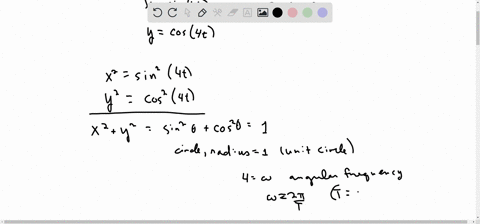 y = cos(4t)
x² = sin²(4t)
y² = cos²(4t)
x² + y² = sin²θ + cos²θ = 1
circle, radius = 1 (unit circle)
4 = ω angular frequency
ω = 2π/T (T =